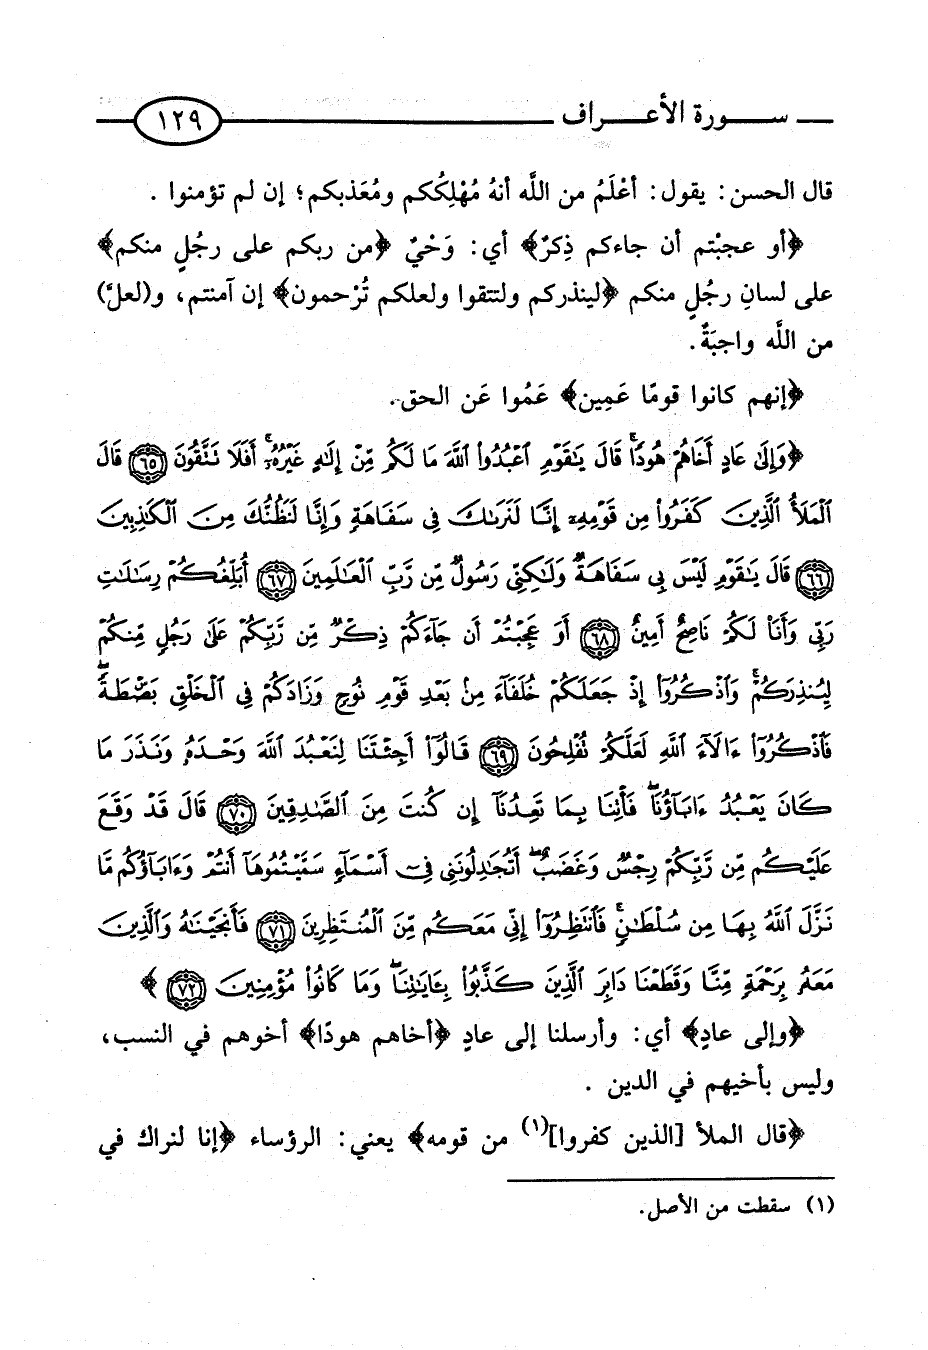 سورة الأعراف ١٢٩
قال الحسن: يقول: أعْلَمُ من اللَّه أنهُ مُهْلِكُكم ومُعَذبكم؛ إن لم تؤمنوا .
﴿أو عجبْتم أن جاءكم ذِكرٌ﴾ أي: وَحْيٌ ﴿من ربكم على رجُلٍ منكم﴾
على لسانِ رجُلٍ منكم ﴿لينذركم ولتتقوا ولعلكم تُرْحمون﴾ إن آمنتم، و(لعلَّ)
من اللَّه واجبَةٌ.
﴿إنهم كانوا قومًا عَمِين﴾ عَمُوا عَن الحق.
﴿وَإِلَىٰ عَادٍ أَخَاهُمْ هُودًا ۗ قَالَ يَٰقَوْمِ ٱعْبُدُوا۟ ٱللَّهَ مَا لَكُم مِّنْ إِلَٰهٍ غَيْرُهُۥٓ ۚ أَفَلَا تَتَّقُونَ ٦٥ قَالَ
ٱلْمَلَأُ ٱلَّذِينَ كَفَرُوا۟ مِن قَوْمِهِۦٓ إِنَّا لَنَرَىٰكَ فِى سَفَاهَةٍ وَإِنَّا لَنَظُنُّكَ مِنَ ٱلْكَٰذِبِينَ
٦٦ قَالَ يَٰقَوْمِ لَيْسَ بِى سَفَاهَةٌ وَلَٰكِنِّى رَسُولٌ مِّن رَّبِّ ٱلْعَٰلَمِينَ ٦٧ أُبَلِّغُكُمْ رِسَٰلَٰتِ
رَبِّى وَأَنَا۠ لَكُمْ نَاصِحٌ أَمِينٌ ٦٨ أَوَ عَجِبْتُمْ أَن جَآءَكُمْ ذِكْرٌ مِّن رَّبِّكُمْ عَلَىٰ رَجُلٍ مِّنكُمْ
لِيُنذِرَكُمْ ۚ وَٱذْكُرُوٓا۟ إِذْ جَعَلَكُمْ خُلَفَآءَ مِنۢ بَعْدِ قَوْمِ نُوحٍ وَزَادَكُمْ فِى ٱلْخَلْقِ بَصْۜطَةً ۖ
فَٱذْكُرُوٓا۟ ءَالَآءَ ٱللَّهِ لَعَلَّكُمْ تُفْلِحُونَ ٦٩ قَالُوٓا۟ أَجِئْتَنَا لِنَعْبُدَ ٱللَّهَ وَحْدَهُۥ وَنَذَرَ مَا
كَانَ يَعْبُدُ ءَابَآؤُنَا ۖ فَأْتِنَا بِمَا تَعِدُنَآ إِن كُنتَ مِنَ ٱلصَّٰدِقِينَ ٧٠ قَالَ قَدْ وَقَعَ
عَلَيْكُم مِّن رَّبِّكُمْ رِجْسٌ وَغَضَبٌ ۖ أَتُجَٰدِلُونَنِى فِىٓ أَسْمَآءٍ سَمَّيْتُمُوهَآ أَنتُمْ وَءَابَآؤُكُم مَّا
نَزَّلَ ٱللَّهُ بِهَا مِن سُلْطَٰنٍ ۚ فَٱنتَظِرُوٓا۟ إِنِّى مَعَكُم مِّنَ ٱلْمُنتَظِرِينَ ٧١ فَأَنجَيْنَٰهُ وَٱلَّذِينَ
مَعَهُۥ بِرَحْمَةٍ مِّنَّا وَقَطَعْنَا دَابِرَ ٱلَّذِينَ كَذَّبُوا۟ بِـَٔايَٰتِنَا ۖ وَمَا كَانُوا۟ مُؤْمِنِينَ ٧٢﴾
﴿وإلى عادٍ﴾ أي: وأرسلنا إلى عادٍ ﴿أخاهم هودًا﴾ أخوهم في النسب،
وليس بأخيهم في الدين .
﴿قال الملأ [الذين كفروا](١) من قومه﴾ يعني: الرؤساء ﴿إنا لنراك في
(١) سقطت من الأصل.